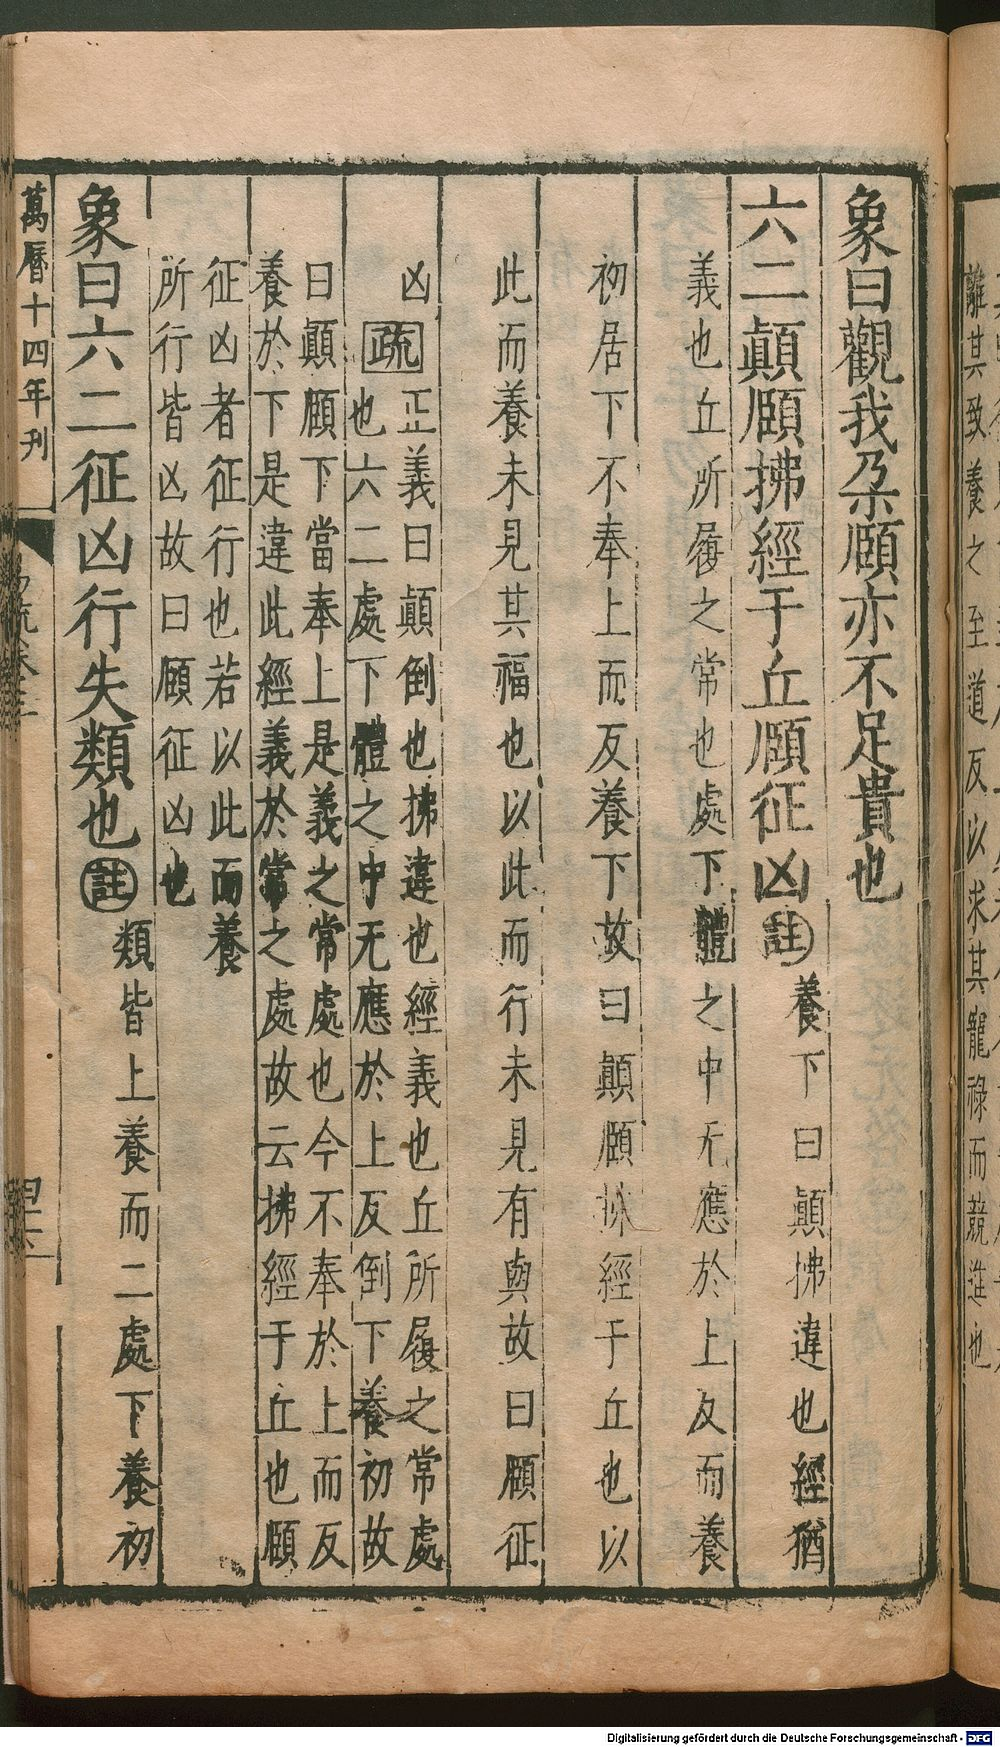 離其致養之至道反以求其寵祿而競進也
象曰觀我朶頤亦不足貴也
六二顚頤拂經于丘頤征凶註養下曰顚拂違也經猶
義也丘所履之常也處下體之中无應於上反而養
初居下不奉上而反養下故曰顚頤拂經于丘也以
此而養未見其福也以此而行未見有與故曰頤征
凶疏正義曰顚倒也拂違也經義也丘所履之常處
也六二處下體之中无應於上反倒下養初故
曰顚頤下當奉上是義之常處也今不奉於上而反
養於下是違此經義於常之處故云拂經于丘也頤
征凶者征行也若以此而養
所行皆凶故曰頤征凶也
象曰六二征凶行失類也註類皆上養而二處下養初
萬曆十四年刊
易疏卷三
四六
Digitalisierung gefördert durch die Deutsche Forschungsgemeinschaft - DFG